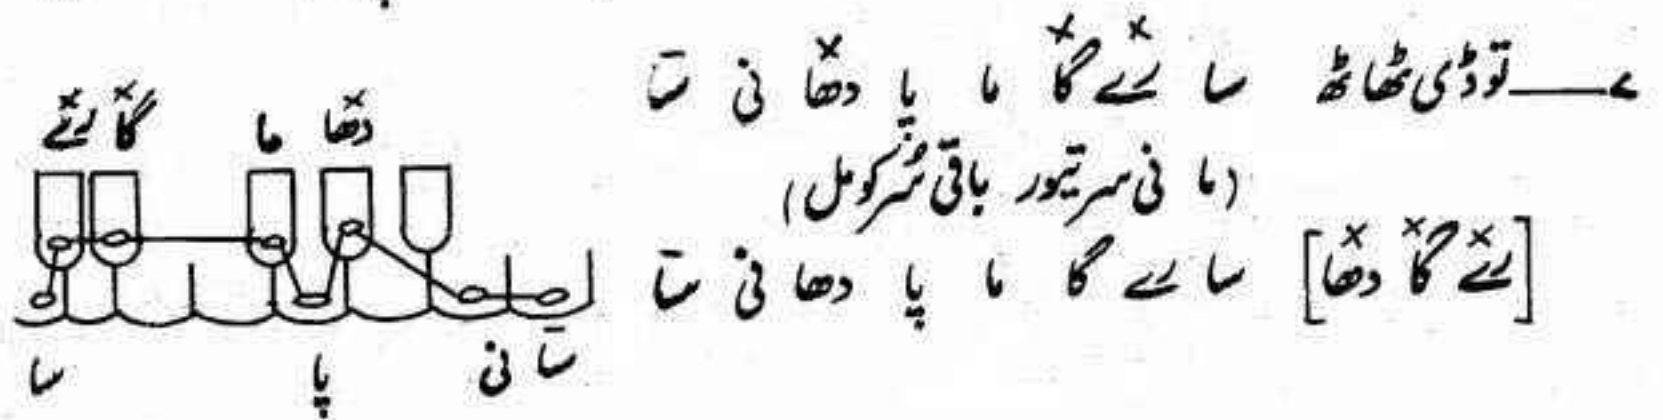 ۷——توڈی ٹھاٹھ سا رے گا ما پا دھا نی سا
(ما نی سر تیور باقی سُر کومل)
[رے گا دھا] سا رے گا ما پا دھا نی سا
رے گا ما دھا
سا پا نی سا